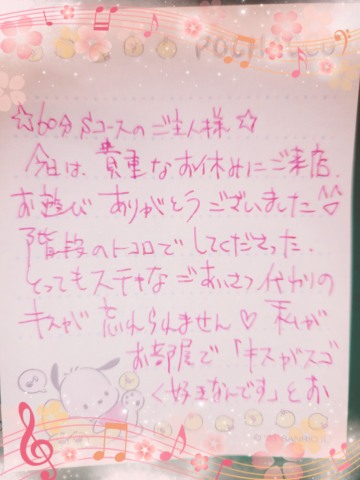 POCHACCO
☆60分Sコースのご主人様☆
今日は、貴重なお休みにご来店、
お遊び ありがとうございました♡
階段のトコロでしてくださった、
とってもステキなごあいさつ代わりの
キスが 忘れられません♡ 私が
お部屋で「キスがスゴ
く好きなんです」とお